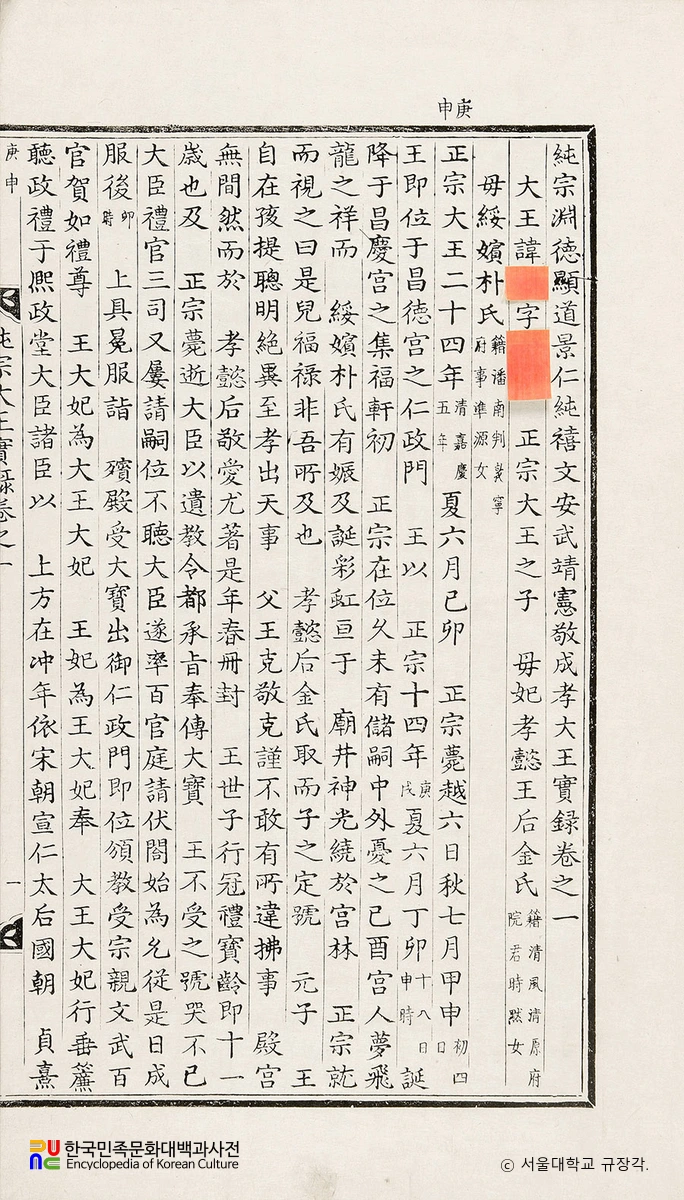 庚申
純宗淵德顯道景仁純禧文安武靖憲敬成孝大王實録卷之一
大王諱 字 正宗大王之子 母妃孝懿王后金氏籍清風清原府院君時默女
母綏嬪朴氏籍潘南判敦寧府事準源女
正宗大王二十四年清嘉慶五年夏六月己卯 正宗薨越六日秋七月甲申初四日
王即位于昌徳宮之仁政門 王以 正宗十四年庚戌夏六月丁卯十八日申時誕
降于昌慶宮之集福軒初 正宗在位久未有儲嗣中外憂之己酉宮人夢飛
龍之祥而 綏嬪朴氏有娠及誕彩虹亘于 廟井神光繞於宮林 正宗就
而視之曰是兒福禄非吾所及也 孝懿后金氏取而子之定號 元子 王
自在孩提聰明絶異至孝出天事 父王克敬克謹不敢有所違拂事 殿宮
無間然而於 孝懿后敬愛尤著是年春冊封 王世子行冠禮寶齡即十一
歲也及 正宗薨逝大臣以遺教令都承旨奉傳大寶 王不受之號哭不已
大臣禮官三司又屢請嗣位不聽大臣遂率百官庭請伏閤始為允從是日成
服後卯時 上具冕服詣 殯殿受大寶出御仁政門即位頒教受宗親文武百
官賀如禮尊 王大妃為大王大妃 王妃為王大妃奉 大王大妃行垂簾
聽政禮于熙政堂大臣諸臣以 上方在冲年依宋朝宣仁太后國朝 貞熹
庚申
純宗大王實録卷之一
一
한국민족문화대백과사전
Encyclopedia of Korean Culture
© 서울대학교 규장각.